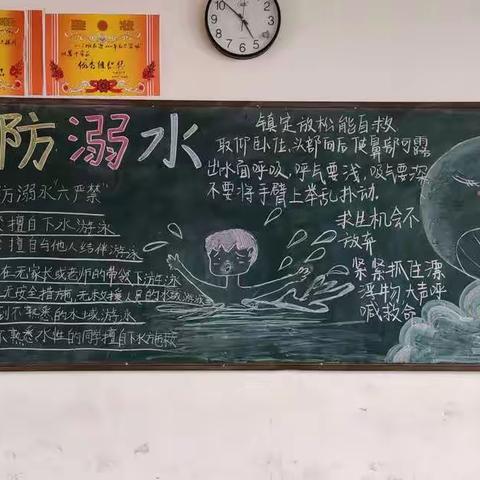 奖状
优秀组织奖
防溺水
防溺水"六严禁"
擅自下水游泳
擅自与他人结伴游泳
在无家长或老师的带领下游泳
无安全措施,无救援人员的水域游泳
到不熟悉的水域游泳
不熟悉水性的同学擅自下水施救
镇定放松能自救
取仰卧位,头部向后使鼻部可露
出水面呼吸,呼气要浅,吸气要深
不要将手臂上举乱扑动.
求生机会不
放弃
紧紧抓住漂
浮物,大声呼
喊救命